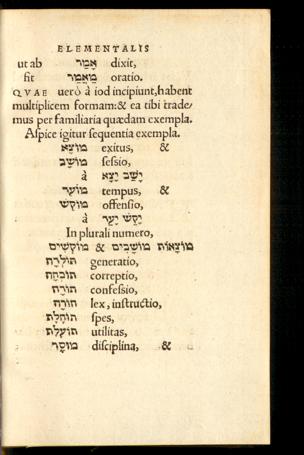 ELEMENTALIS
ut ab אָמַר dixit,
fit מַאֲמַר oratio.
QVAE uerò à iod incipiunt, habent
multiplicem formam: & ea tibi trade/
mus per familiaria quædam exempla.
Aspice igitur sequentia exempla.
מוֹצָא exitus, &
מוֹשָׁב sessio,
à יָשַׁב יָצָא
מוֹעֵד tempus, &
מוֹקֵשׁ offensio,
à
In plurali numero,
מוֹצָאוֹת מוֹשָׁבִים & מוֹקְשִׁים
generatio,
correptio,
confessio,
lex, instructio,
spes,
utilitas,
מוּסָר disciplina, &